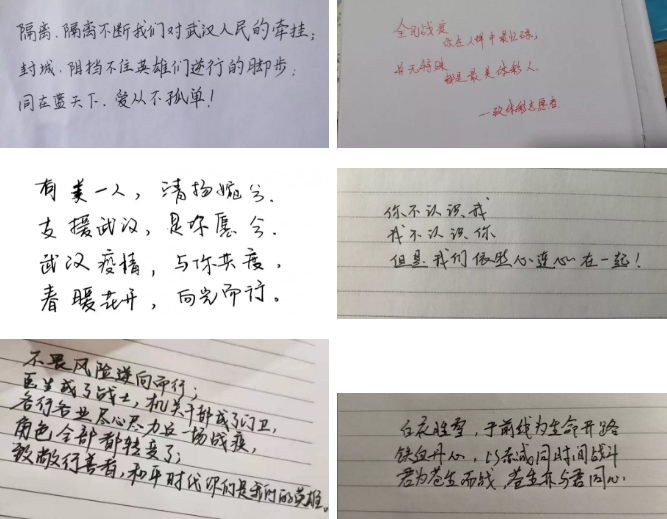 隔离.隔离不断我们对武汉人民的牵挂;
封城.阻挡不住英雄们逆行的脚步;
同在蓝天下.爱从不孤单!
全民战疫
你在人群中最忙碌,
若无特殊
都是最美体彩人.
一致体彩志愿者
有美一人,清扬婉兮.
支援武汉,是你愿兮.
武汉疫情,与你共度,
春暖花开,向光而行。
你不认识我
我不认识你
但是我们依然心连心在一起!
不畏风险逆向而行;
医生成了战士,机关干部成了门卫,
各行各业尽心尽力只一场战疫,
角色全部都转变了;
致敬行善者,和平时代你们是我们的英雄。
白衣胜雪,于前线为生命开路
铁血丹心,以赤诚同时间战斗
君为苍生而战,苍生亦与君同心.